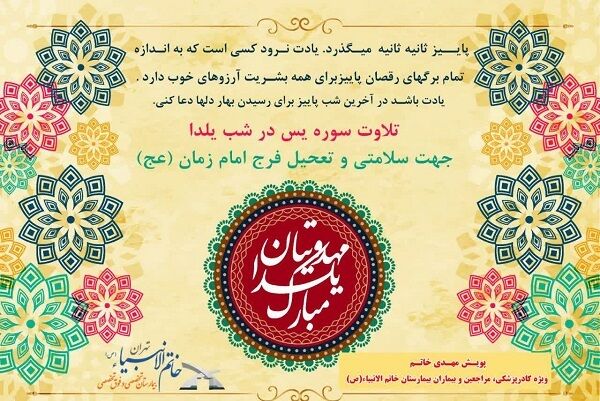 پاییز ثانیه ثانیه میگذرد. یادت نرود کسی است که به اندازه
تمام برگهای رقصان پاییزبرای همه بشریت آرزوهای خوب دارد .
یادت باشد در آخرین شب پاییز برای رسیدن بهار دلها دعا کنی.
تلاوت سوره یس در شب یلدا
جهت سلامتی و تعحیل فرج امام زمان (عج)
یلدا
مهدویتان
مبارک
تهران
خاتم الانبیاء (ص)
بیمارستان تخصصی و فوق تخصصی
پویش مهدی خاتم
ویژه کادرپزشکی، مراجعین و بیماران بیمارستان خاتم الانبیاء(ص)